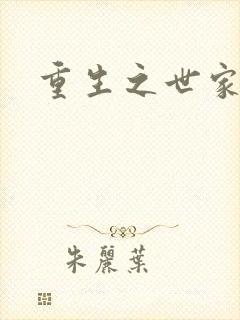 重生之世家
朱麗葉